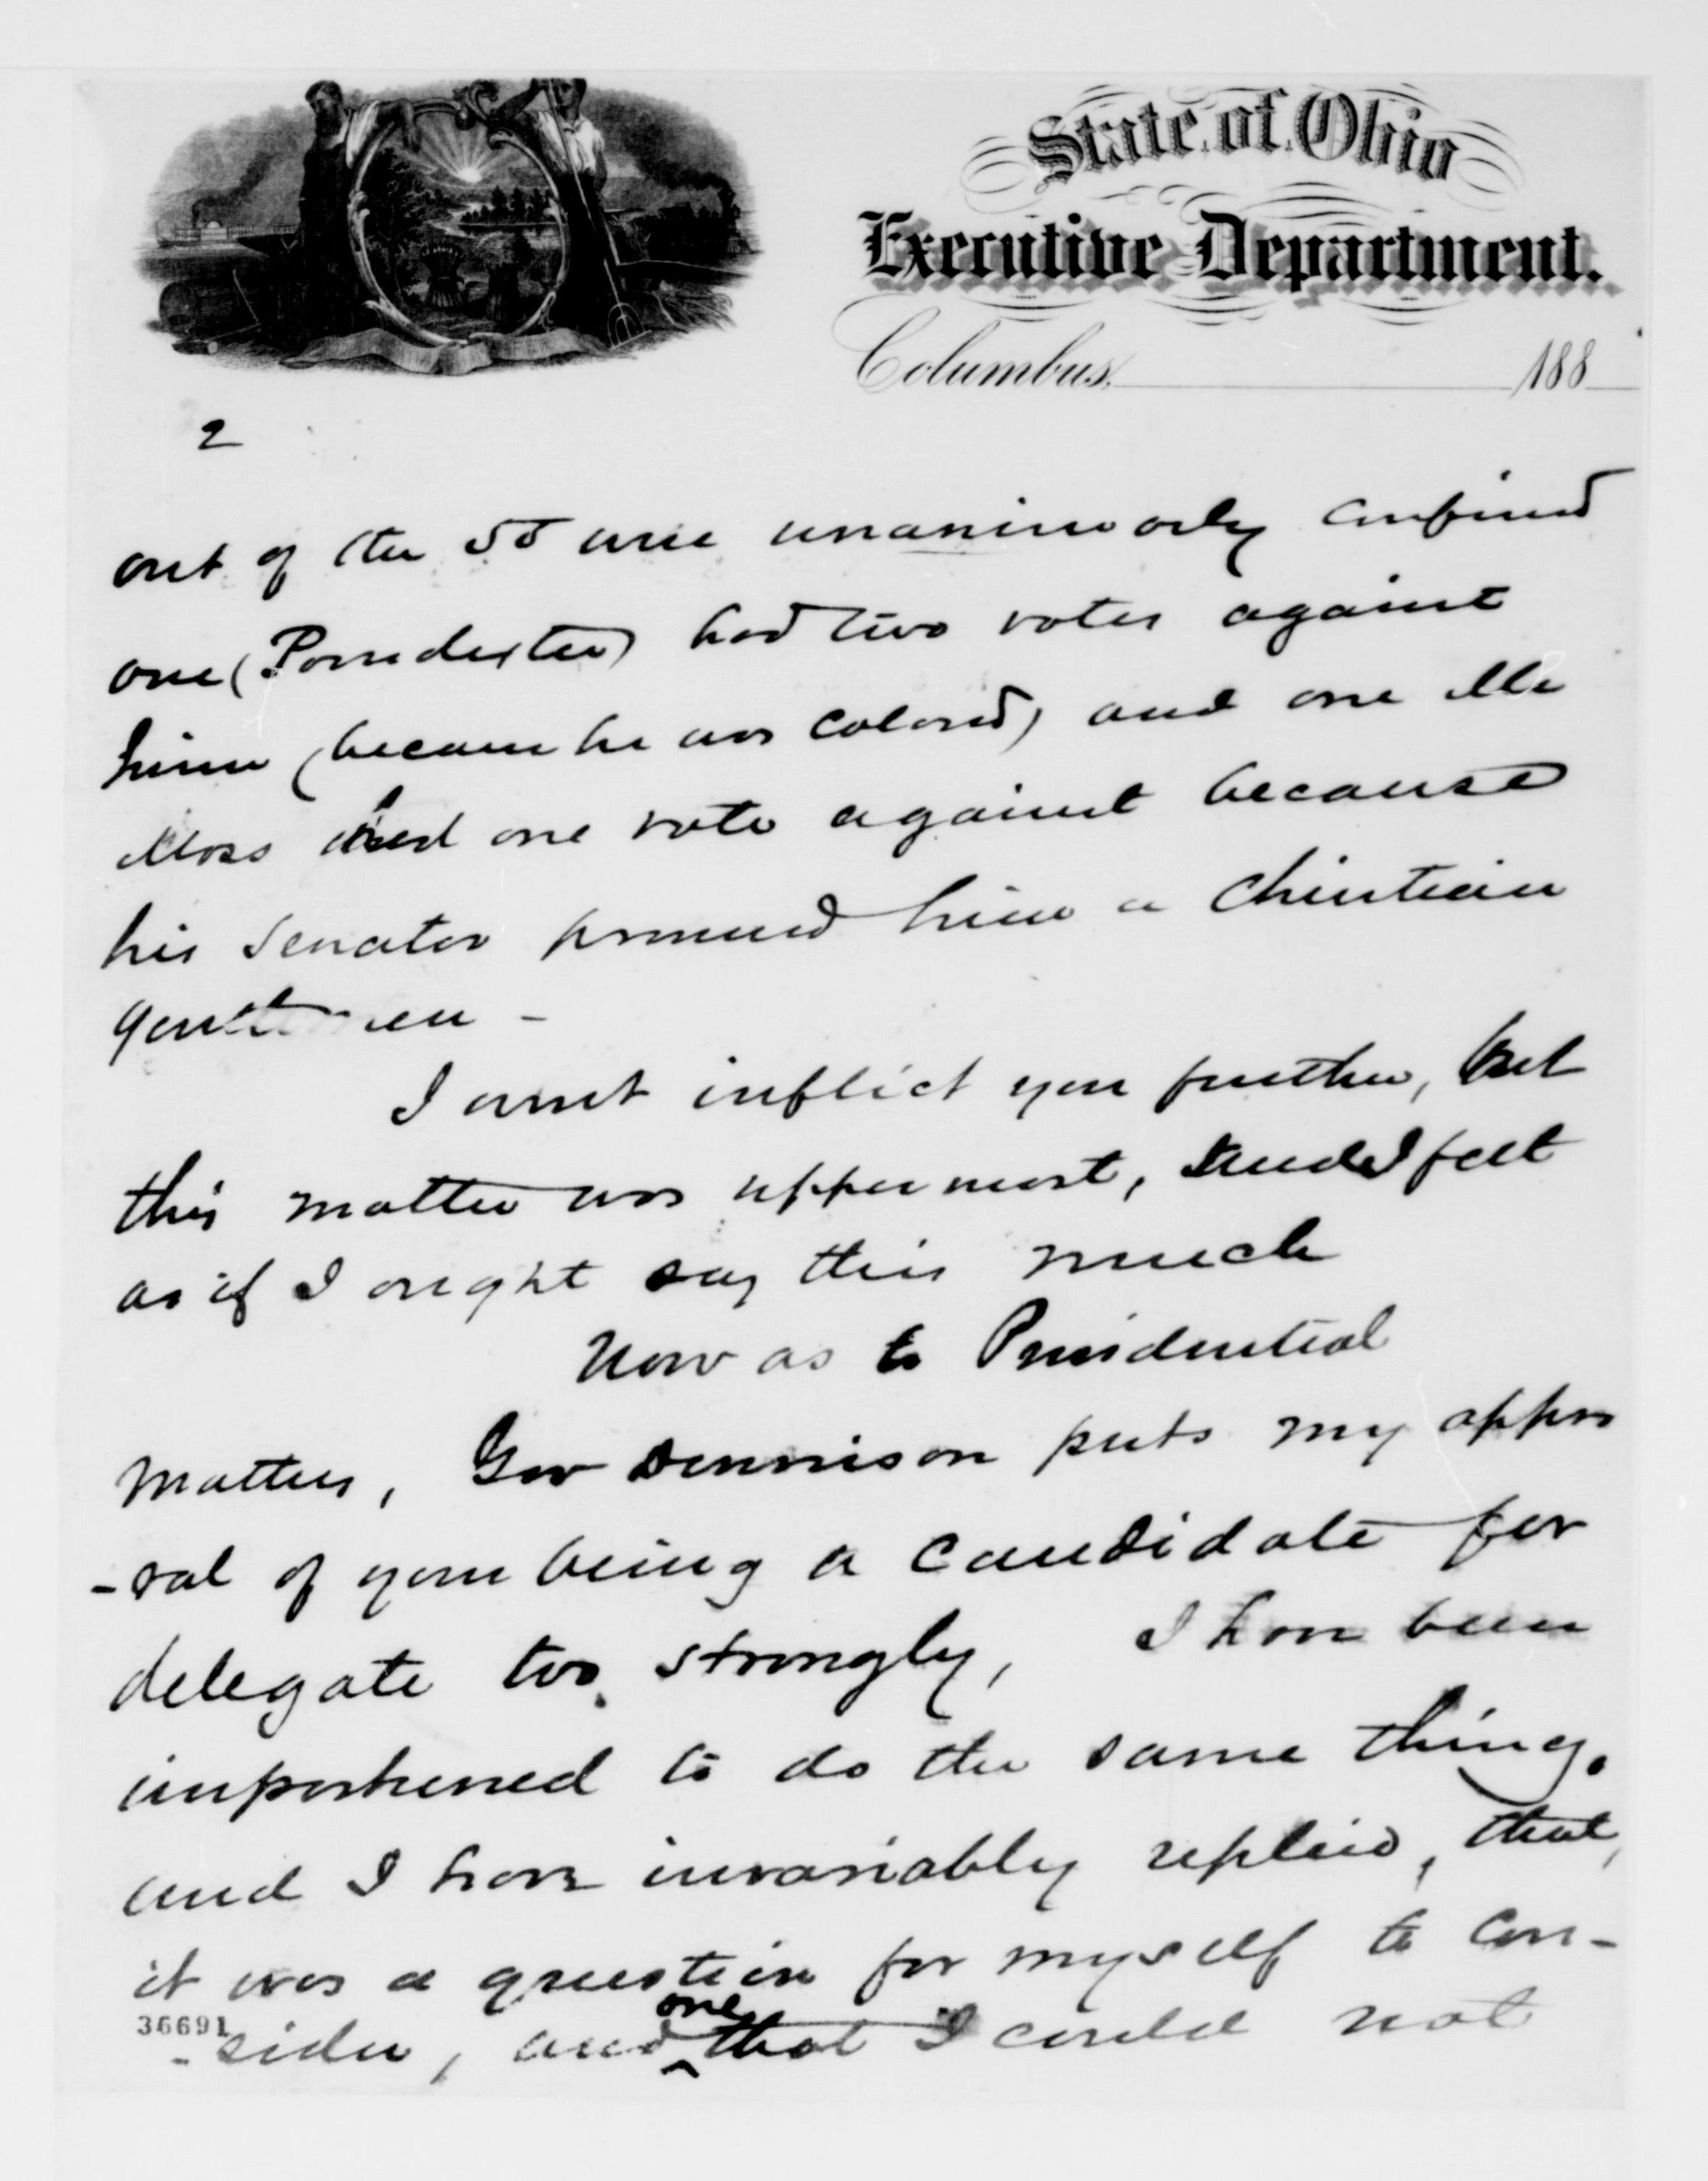 State of Ohio
Executive Department.
Columbus, 188
2
out of the 50 were unanimously confirmed
one (Poindexter) had two votes against
him (because he was colored) and one Mr
Moss had one vote against because
his Senator pronounced him a Christian
gentlemen -
I wont inflict you further, but
this matter was uppermost, and I felt
as if I ought say this much
Now as to Presidential
matters, Gov Dennison puts my appro
-val of your being a candidate for
delegate too strongly, I have been
importuned to do the same thing.
and I have invariably replied, that,
it was a question for myself to con-
36691
-sider, and one that I could not